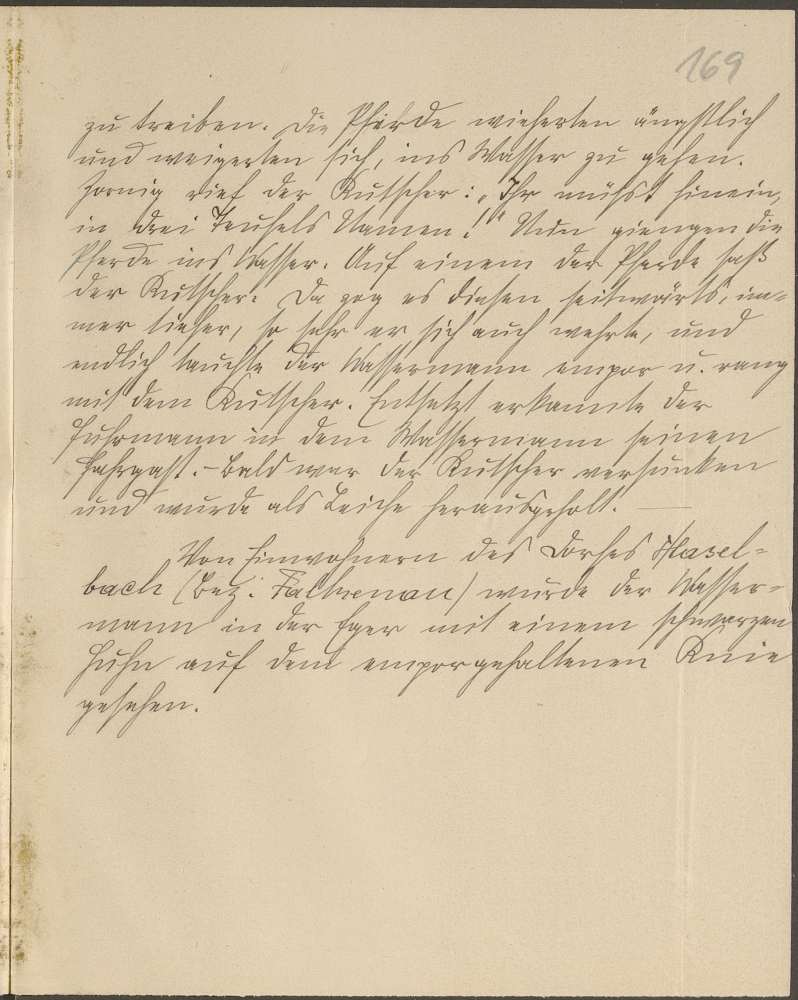 169
zu treiben. Die Pferde wieherten ängstlich
und weigerten sich, ins Wasser zu gehen.
Zornig rief der Kutscher: „Ihr müßt hinein,
in drei Teufels Namen!" Nun giengen die
Pferde ins Wasser. Auf einem der Pferde saß
der Kutscher. Da zog es diesen seitwärts, im=
mer tiefer, so sehr er sich auch wehrte, und
endlich tauchte der Wassermann empor u. rang
mit dem Kutscher. Entsetzt erkannte der
Fuhrmann in dem Wassermann seinen
Fahrgast. – Bald war der Kutscher versunken
und wurde als Leiche herausgeholt. —
Von Einwohnern des Dorfes Hasel=
bach (Bez. Falkenau) wurde der Wasser=
mann in der Eger mit einem schwarzen
Huhn auf dem emporgehaltenen Knie
gesehen.